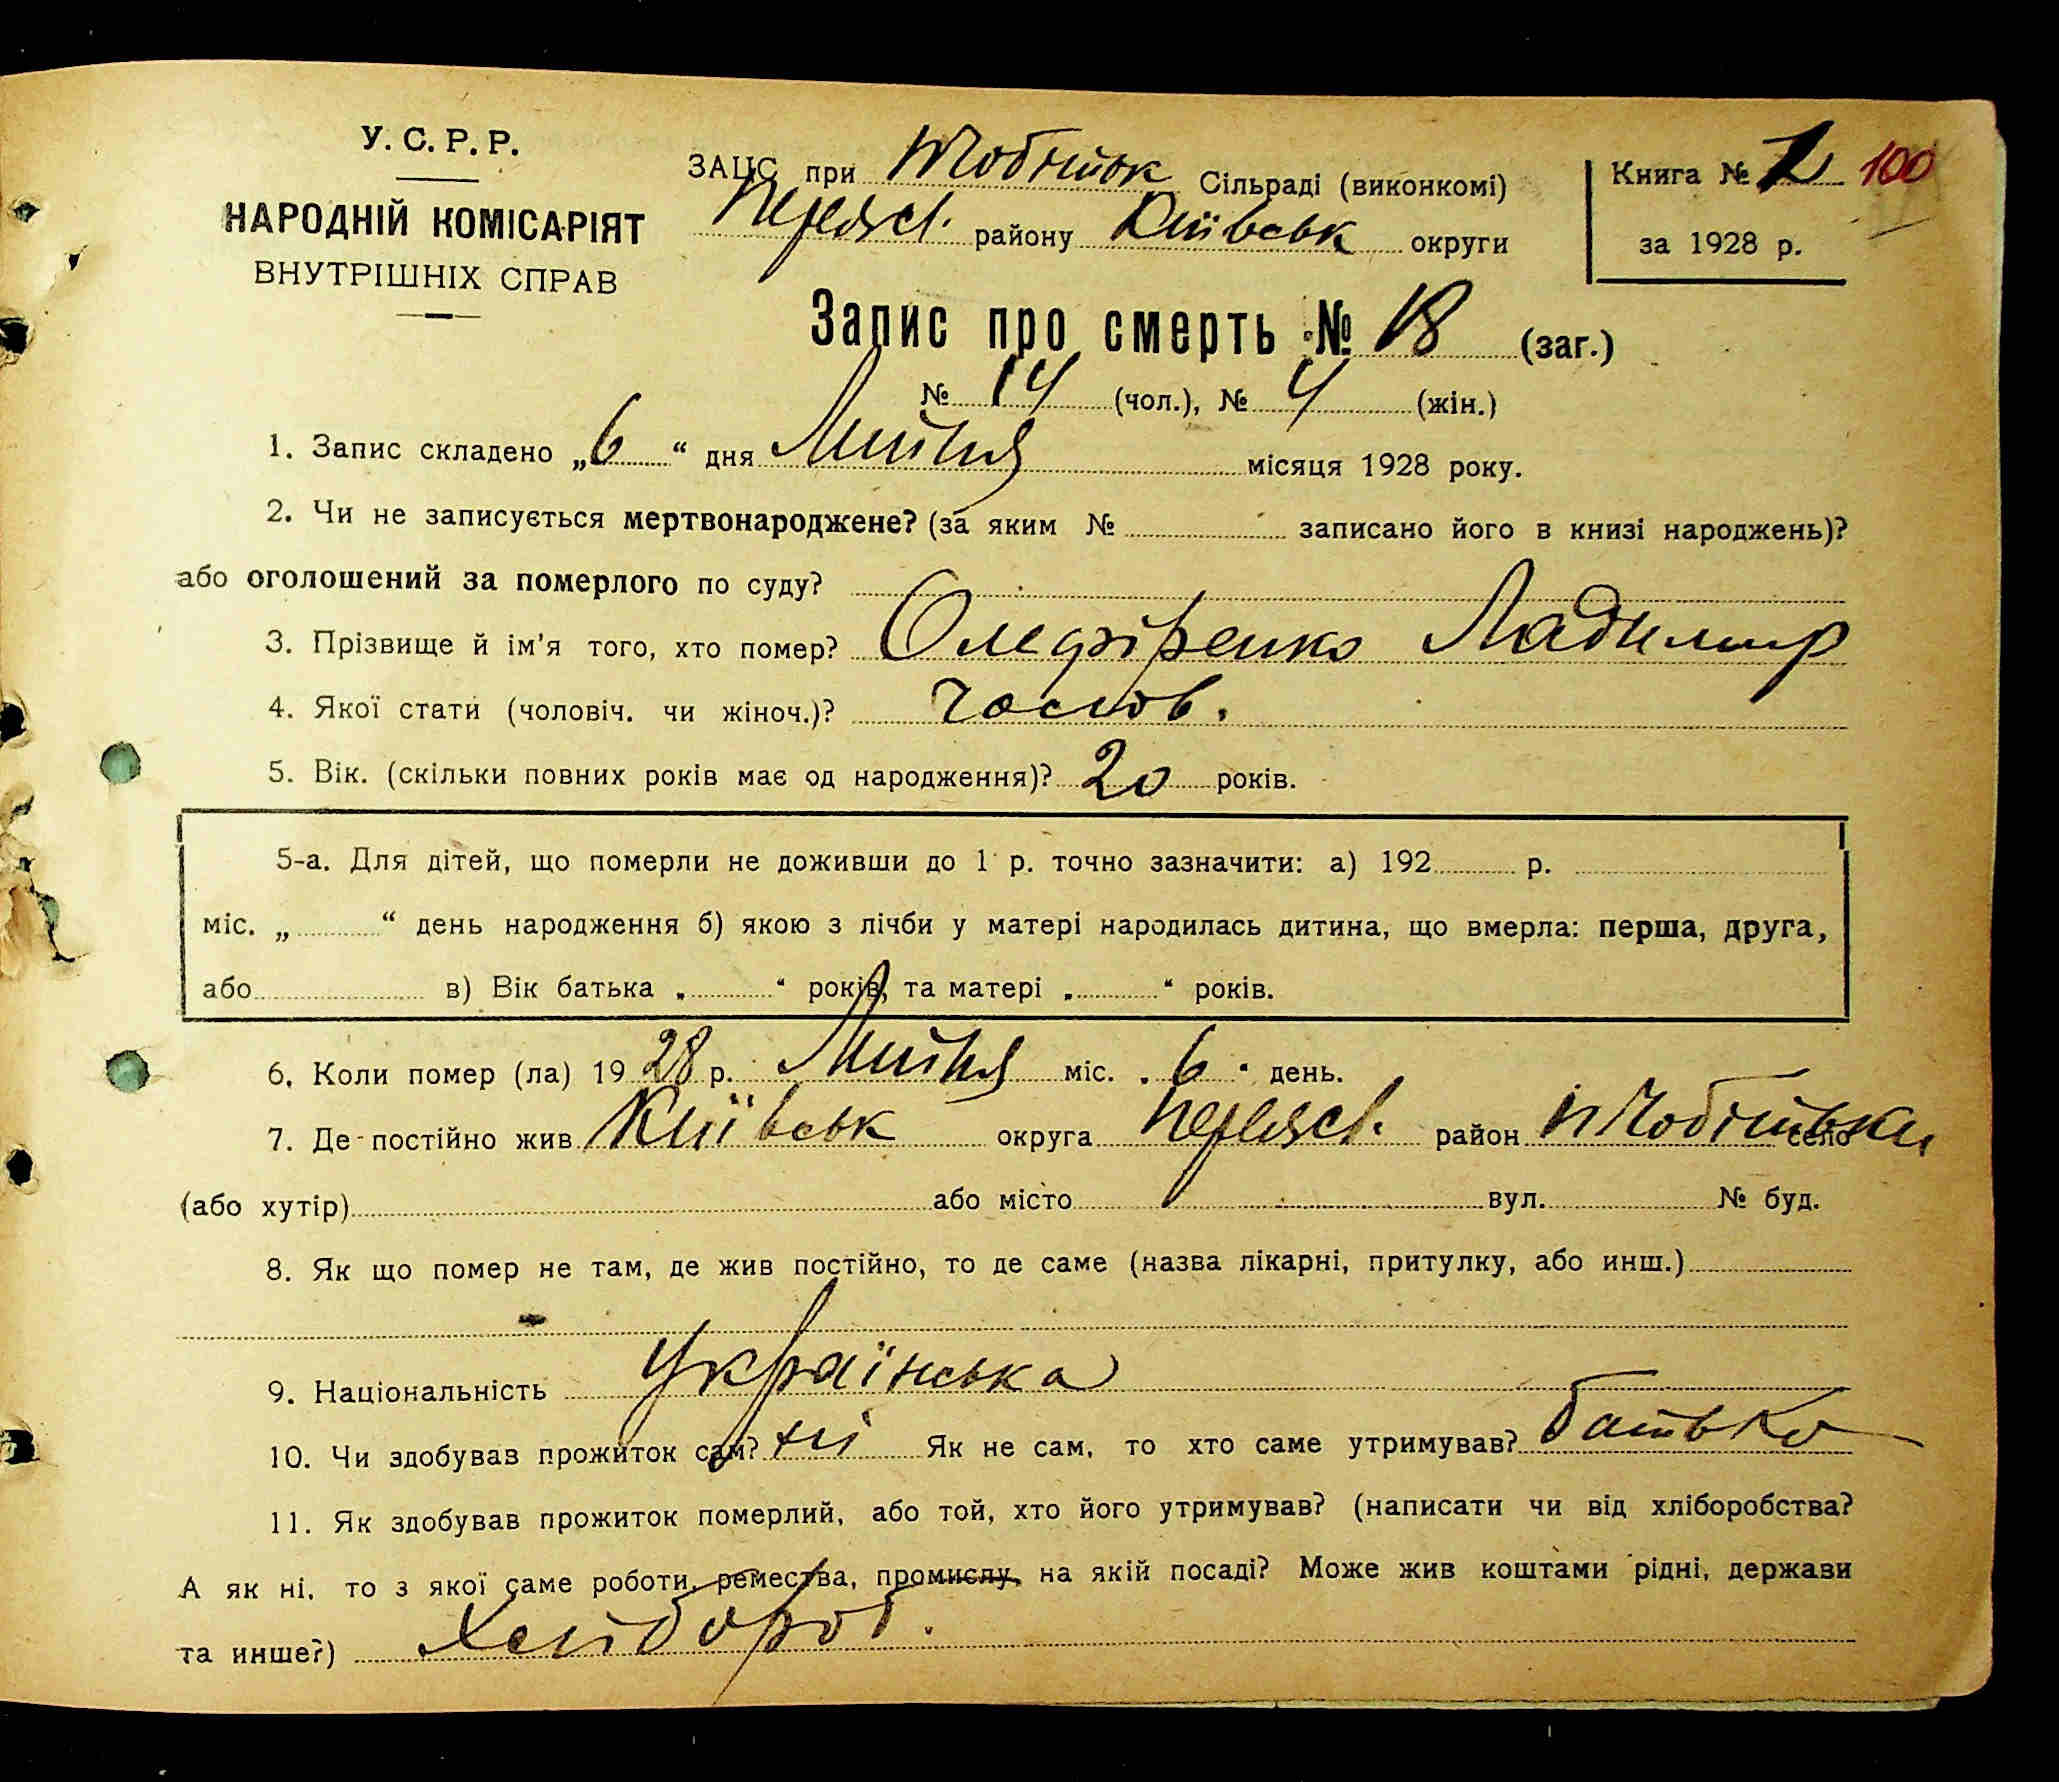 У. С. Р. Р.
НАРОДНІЙ КОМІСАРІЯТ
ВНУТРІШНІХ СПРАВ
ЗАЦС при Чобітьк Сільраді (виконкомі)
Переясл. району Київськ округи
Книга № 2 100
за 1928 р.
Запис про смерть № 18 (заг.)
№ 14 (чол.), № 4 (жін.)
1. Запис складено „6“ дня Липня місяця 1928 року.
2. Чи не записується мертвонароджене? (за яким № записано його в книзі народжень)?
або оголошений за померлого по суду?
3. Прізвище й ім'я того, хто помер? Олефіренко Ладимир
4. Якої стати (чоловіч. чи жіноч.)? Чолов.
5. Вік. (скільки повних років має од народження)? 20 років.
5-а. Для дітей, що померли не доживши до 1 р. точно зазначити: а) 192 р.
міс. „ “ день народження б) якою з лічби у матері народилась дитина, що вмерла: перша, друга,
або в) Вік батька „ “ років, та матері „ “ років.
6. Коли помер (ла) 1928 р. Липня міс. „6“ день.
7. Де постійно жив Київськ округа Переясл. район село
(або хутір) або місто вул. № буд.
8. Як що помер не там, де жив постійно, то де саме (назва лікарні, притулку, або инш.)
9. Національність Українська
10. Чи здобував прожиток сам? ні Як не сам, то хто саме утримував? батько
11. Як здобував прожиток померлий, або той, хто його утримував? (написати чи від хліборобства?
А як ні, то з якої саме роботи, ремества, промислу, на якій посаді? Може жив коштами рідні, держави
та инше?) Хлібороб.